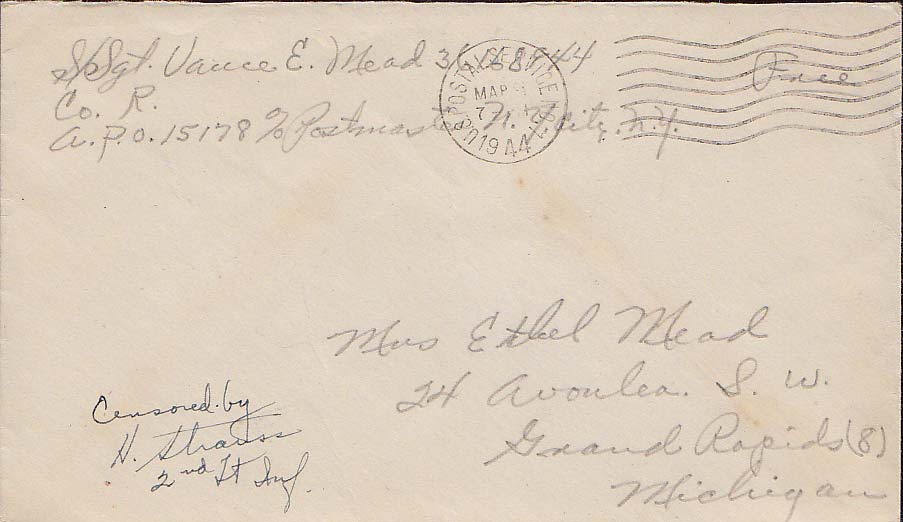 S/Sgt. Vance E. Mead
Co. R.
A.P.O. 15178 c/o Postmaster N. Y. City. N.Y.
U.S. POSTAL SERVICE
MAR
1944
Free
Mrs Ethel Mead
24 Avonlea. S. W.
Grand Rapids (8)
Michigan
Censored by
H. Strauss
2nd Lt Inf.